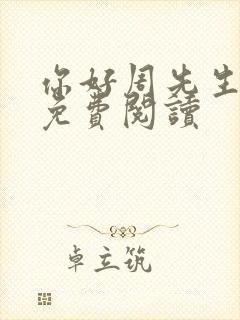 你好周先生
免費閱讀
卓立筑